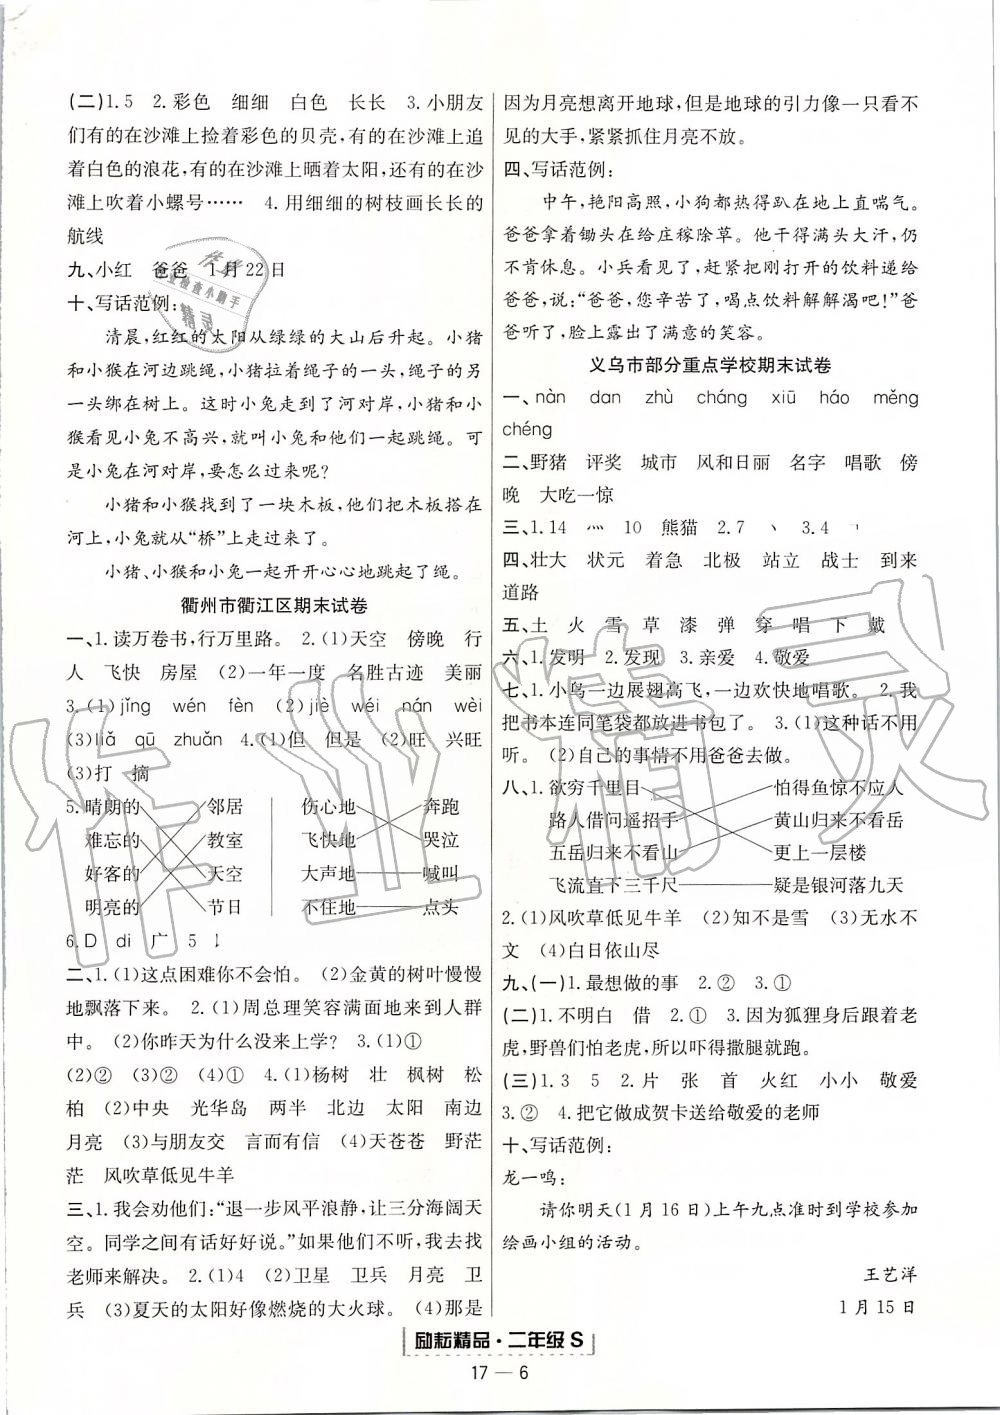 (二)1.5 2.彩色 细细 白色 长长 3.小朋友
们有的在沙滩上捡着彩色的贝壳,有的在沙滩上追
着白色的浪花,有的在沙滩上晒着太阳,还有的在沙
滩上吹着小螺号…… 4.用细细的树枝画长长的
航线
九、小红 爸爸 1月22日
十、写话范例:
清晨,红红的太阳从绿绿的大山后升起。小猪
和小猴在河边跳绳,小猪拉着绳子的一头,绳子的另
一头绑在树上。这时小兔走到了河对岸,小猪和小
猴看见小兔不高兴,就叫小兔和他们一起跳绳。可
是小兔在河对岸,要怎么过来呢?
小猪和小猴找到了一块木板,他们把木板搭在
河上,小兔就从“桥”上走过来了。
小猪、小猴和小兔一起开开心心地跳起了绳。
衢州市衢江区期末试卷
一、1.读万卷书,行万里路。 2.(1)天空 傍晚 行
人 飞快 房屋 (2)一年一度 名胜古迹 美丽
3.(1)jǐng wén fèn (2)jiè wéi nán wèi
(3)liǎ qū zhuǎn 4.(1)但 但是 (2)旺 兴旺
(3)打 摘
5.晴朗的 邻居 伤心地 奔跑
难忘的 教室 飞快地 哭泣
好客的 天空 大声地 喊叫
明亮的 节日 不住地 点头
6.D di 广 5
二、1.(1)这点困难你不会怕。 (2)金黄的树叶慢慢
地飘落下来。 2.(1)周总理笑容满面地来到人群
中。 (2)你昨天为什么没来上学? 3.(1)①
(2)② (3)② (4)① 4.(1)杨树 壮 枫树 松
柏 (2)中央 光华岛 两半 北边 太阳 南边
月亮 (3)与朋友交 言而有信 (4)天苍苍 野茫
茫 风吹草低见牛羊
三、1.我会劝他们:“退一步风平浪静,让三分海阔天
空。同学之间有话好好说。”如果他们不听,我就去找
老师来解决。 2.(1)4 (2)卫星 卫兵 月亮 卫
兵 (3)夏天的太阳好像燃烧的大火球。 (4)那是
因为月亮想离开地球,但是地球的引力像一只看不
见的大手,紧紧抓住月亮不放。
四、写话范例:
中午,艳阳高照,小狗都热得趴在地上直喘气。
爸爸拿着锄头在给庄稼除草。他干得满头大汗,仍
不肯休息。小兵看见了,赶紧把刚打开的饮料递给
爸爸,说:“爸爸,您辛苦了,喝点饮料解解渴吧!”爸
爸听了,脸上露出了满意的笑容。
义乌市部分重点学校期末试卷
一、nàn dan zhù cháng xiū háo měng
chéng
二、野猪 评奖 城市 风和日丽 名字 唱歌 傍
晚 大吃一惊
三、1.14 灬 10 熊猫 2.7 丶 3.4
四、壮大 状元 着急 北极 站立 战士 到来
道路
五、土 火 雪 草 漆 弹 穿 唱 下 戴
六、1.发明 2.发现 3.亲爱 4.敬爱
七、1.小鸟一边展翅高飞,一边欢快地唱歌。 2.我
把书本连同笔袋都放进书包了。 3.(1)这种话不用
听。 (2)自己的事情不用爸爸去做。
八、1.欲穷千里目 怕得鱼惊不应人
路人借问遥招手 黄山归来不看岳
五岳归来不看山 更上一层楼
飞流直下三千尺 疑是银河落九天
2.(1)风吹草低见牛羊 (2)知不是雪 (3)无水不
文 (4)白日依山尽
九、(一)1.最想做的事 2.② 3.①
(二)1.不明白 借 2.① 3.因为狐狸身后跟着老
虎,野兽们怕老虎,所以吓得撒腿就跑。
(三)1.3 5 2.片 张 首 火红 小小 敬爱
3.② 4.把它做成贺卡送给敬爱的老师
十、写话范例:
龙一鸣:
请你明天(1月16日)上午九点准时到学校参加
绘画小组的活动。
王艺洋
1月15日
励耘精品·二年级 S
17 — 6
作业精灵
作业检查小助手
精灵